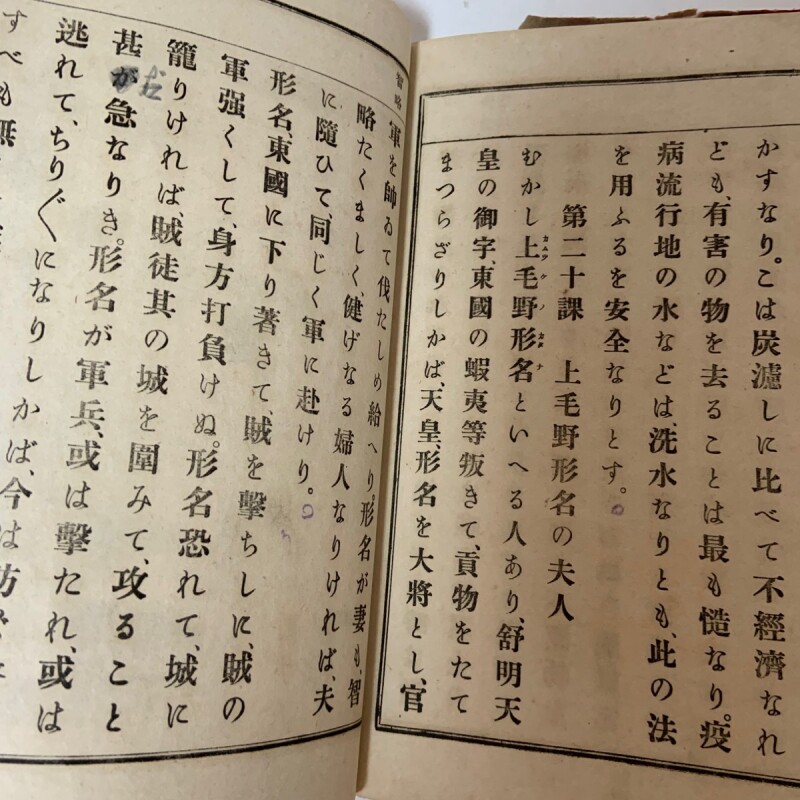 かすなり。こは炭濾しに比べて不經濟なれ
ども、有害の物を去ることは最も慥なり。疫
病流行地の水などは、洗水なりとも、此の法
を用ふるを安全なりとす。
第二十課 上毛野形名の夫人
むかし上毛野形名といへる人あり、舒明天
皇の御宇、東國の蝦夷等叛きて、貢物をたて
まつらざりしかば、天皇、形名を大將とし、官
智略
軍を帥ゐて伐たしめ給へり。形名が妻も、智
略たくましく、健げなる婦人なりければ、夫
に隨ひて、同じく軍に赴けり。
形名、東國に下り著きて、賊を擊ちしに、賊の
軍强くして、身方打負けぬ。形名恐れて、城に
籠りければ、賊徒其の城を圍みて、攻ること
甚だ急なりき。形名が軍兵、或は擊たれ、或は
逃れて、ちり〲になりしかば、今は防
すべも無